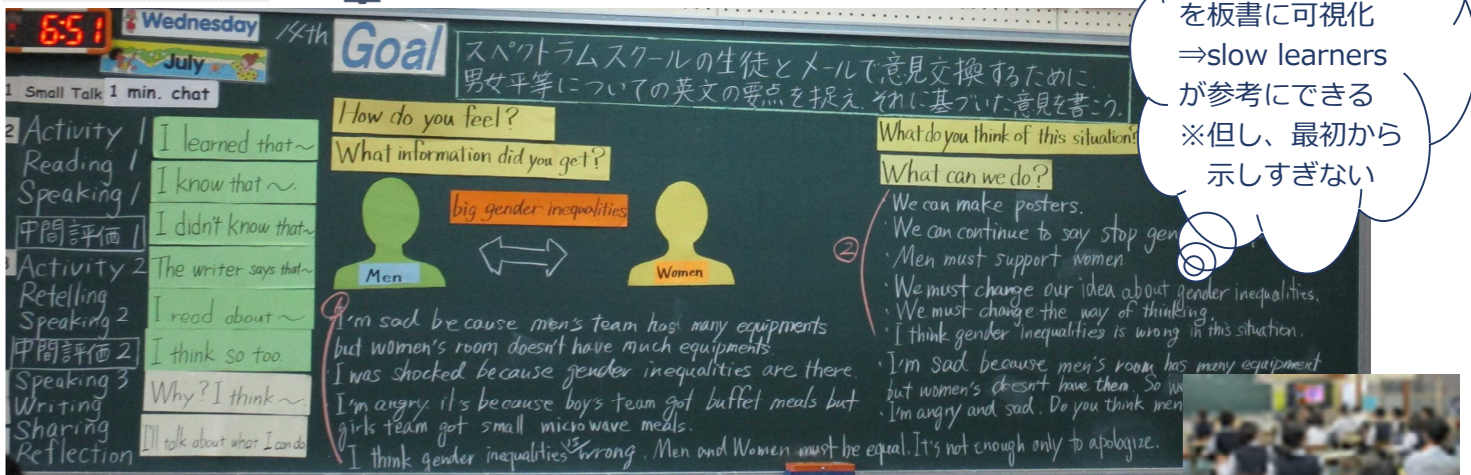 6:51
Wednesday
14th
July
Goal
スペクトラムスクールの生徒とメールで意見交換するために、
男女平等についての英文の要点を捉え、それに基づいた意見を書こう。
1 Small Talk 1 min. chat
2 Activity 1
Reading 1
Speaking 1
中間評価 1
3 Activity 2
Retelling
Speaking 2
中間評価 2
Speaking 3
Writing
Sharing
Reflection
I learned that~
I know that ~.
I didn't know that~
The writer says that~
I read about ~
I think so too.
Why? I think ~.
I'll talk about what I can do
How do you feel?
What information did you get?
big gender inequalities
Men
Women
1
I'm sad because men's team has many equipments
but women's room doesn't have much equipments.
I was shocked because gender inequalities are there.
I'm angry. it's because boy's team got buffet meals but
girls team got small microwave meals.
I think gender inequalities is wrong. Men and Women must be equal. It's not enough only to apologize.
What do you think of this situation?
What can we do?
2
・We can make posters.
・We can continue to say stop gen
・Men must support women.
・We must change our idea about gender inequalities.
・We must change the way of thinking.
・I think gender inequalities is wrong in this situation.
・I'm sad because men's room has many equipment
but women's doesn't have them. So
・I'm angry and sad. Do you think men
を板書に可視化
⇒slow learners
が参考にできる
※但し、最初から
示しすぎない